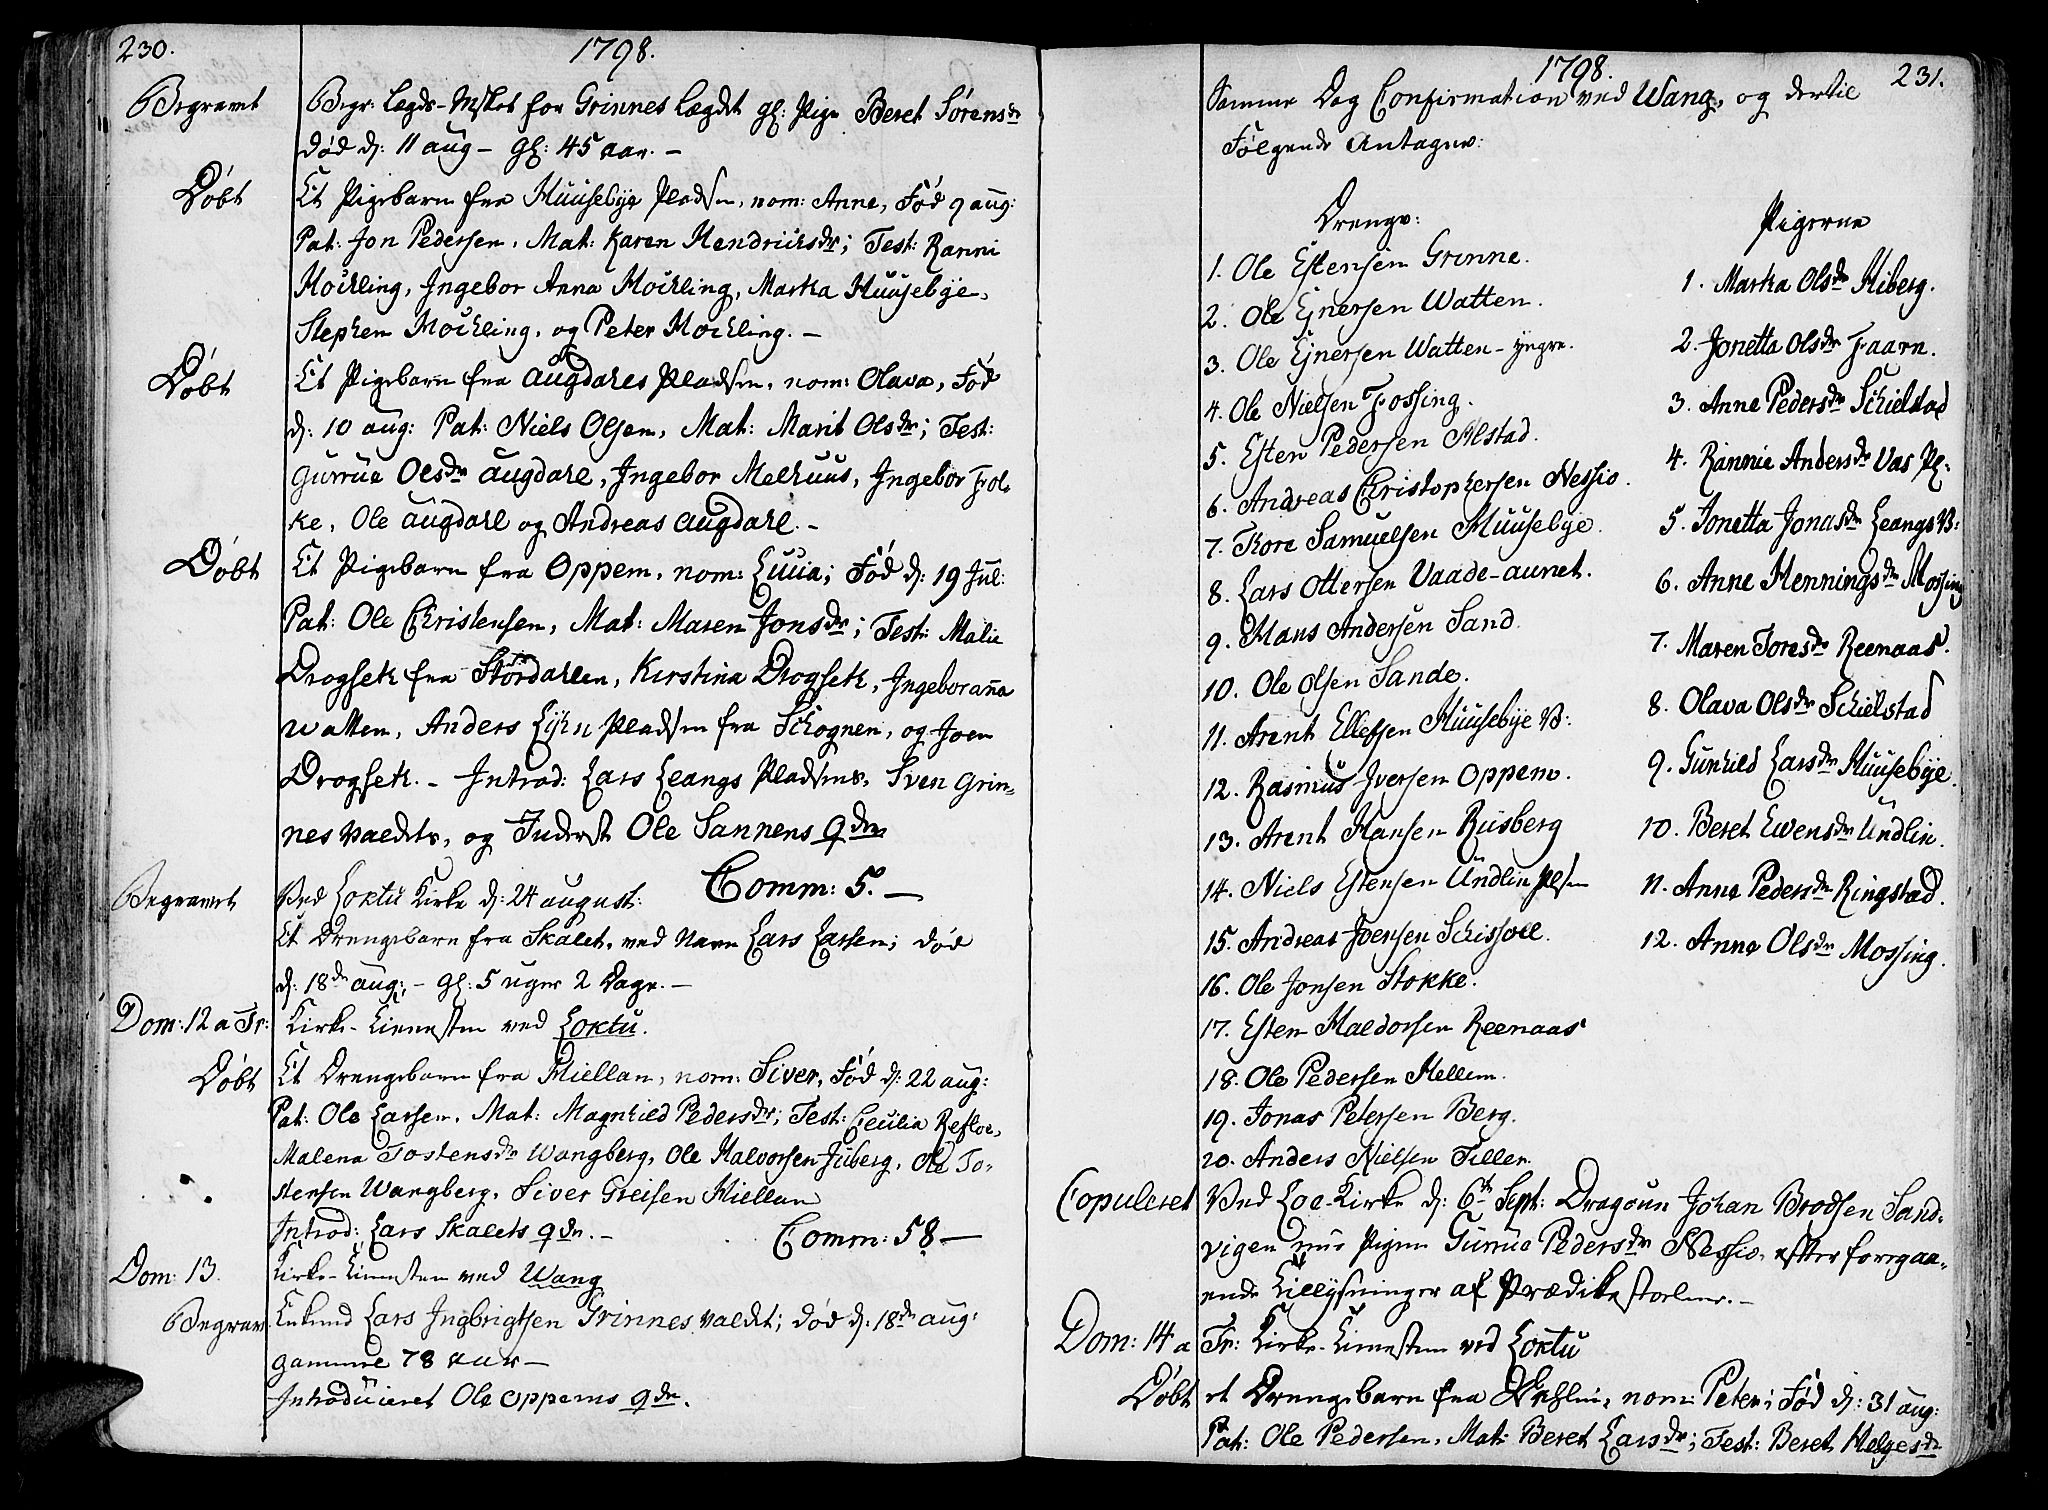 230.
1798.
Begravet
Begr: Lægds-Msket fra Grinnes Lægdt gl: Pige Beret Sørensdr
død d: 11 aug - gl: 45 aar. -
Døbt
Et Pigebarn fra Huusebye Pladsen, nom: Anne, Fød 9 aug:
Pat: Jon Pedersen, Mat: Karen Hendrichsdr; Test: Ranni
Mochling, Ingebor Anna Mochling, Marka Huusebye,
Stephen Mochling, og Peter Mochling. -
Døbt
Et Pigebarn fra Augdahls Pladsen, nom: Olava, Fød
d: 10 aug: Pat: Niels Olsen, Mat: Marit Olsdr; Test:
Gurrue Olsdr Augdahl, Ingebor Melhuus, Ingebor Fol-
ke, Ole Augdahl og Andreas Augdahl. -
Døbt
Et Pigebarn fra Oppem, nom: Lucia; Fød d: 19 Jul:
Pat: Ole Christensen, Mat: Maren Jonsdr; Test: Malie
Drogseth fra Størdahlen, Kirstina Drogseth, Ingeboranna
Watten, Anders Pladsen fra Schognen, og Joen
Drogseth. - Introd: Lars Leangs Pladsens, Sven Grin-
nes valdets, og Inderst Ole Sannens qde
Comm: 5. -
Begravet
Ved Loktu Kirke d: 24 august:
Et Drengebarn fra Skalet, ved Navn Lars Larsen; død
d: 18de aug: - gl: 5 uger 2 Dage. -
Dom: 12 a Tr:
Kirke-Tienesten ved Loktu.
Døbt
Et Drengebarn fra Hiellan, nom: Siver, Fød d: 22 aug:
Pat: Ole Larsen, Mat: Magnhild Pedersdr; Test: Cecilia Refloe,
Malena Tostensdr Wangberg, Ole Halvorsen Juberg, Ole To-
stensen Wangberg, Siver Greisen Hiellan
Introd: Lars Skalets qde. -
Comm: 58 -
Dom: 13.
Kirke-Tienesten ved Wang
Begrav
Enkemd Lars Ingbrigtsen Grinnes valdet; død d: 18de aug:
gammel 78 aar -
Introduceret Ole Oppems qde.
1798.
231.
Samme Dag Confirmation ved Wang, og dertil
Følgende Antagne:
Drenge:
1. Ole Estensen Grinne.
2. Ole Ejnersen Watten.
3. Ole Ejnersen Watten - yngre.
4. Ole Nielsen Fossing.
5. Esten Pedersen Alstad.
6. Andreas Christophersen Nessio.
7. Thore Samuelsen Huusebye.
8. Lars Ottersen Vaade-aunet.
9. Hans Andersen Sand.
10. Ole Olsen Sande.
11. Arent Ellefsen Huusebye V:
12. Rasmus Iversen Oppem.
13. Arent Hansen Riisberg
14. Niels Estensen Undlin Plsen
15. Andreas Joensen Schissvell.
16. Ole Jonsen Stokke.
17. Esten Haldorsen Reenaas
18. Ole Pedersen Hellem.
19. Jonas Petersen Berg.
20. Anders Nielsen Tiller.
Pigerne
1. Marka Olsdr Hiberg.
2. Jonetta Olsdr Faarn.
3. Anne Pedersdr Schielstad
4. Rannie Andersdr Vas Pl:
5. Jonetta Jonasdr Leangs V:
6. Anne Henningsdr Mossing
7. Maren Toresdr Reenaas.
8. Olava Olsdr Schielstad
9. Gunhild Larsdr Huusebye.
10. Beret Ewensdr Undlin.
11. Anne Pedersdr Ringstad.
12. Anne Olsdr Mossing.
Copuleret
Ved Loe-Kirke d: 6te Sept: Dragoun Johan Brodsen Sand-
vigen med Pigen Gurrue Pedersdr Nessio, efter foregaa-
ende Tillysninger af Prædikestolene. -
Dom: 14 a
Tr: Kirke-Tienesten ved Loktu
Døbt
et Drengebarn fra nom: Peter; Fød d: 31 aug:
Pat: Ole Pedersen, Mat: Beret Larsdr; Test: Beret Helgesdr